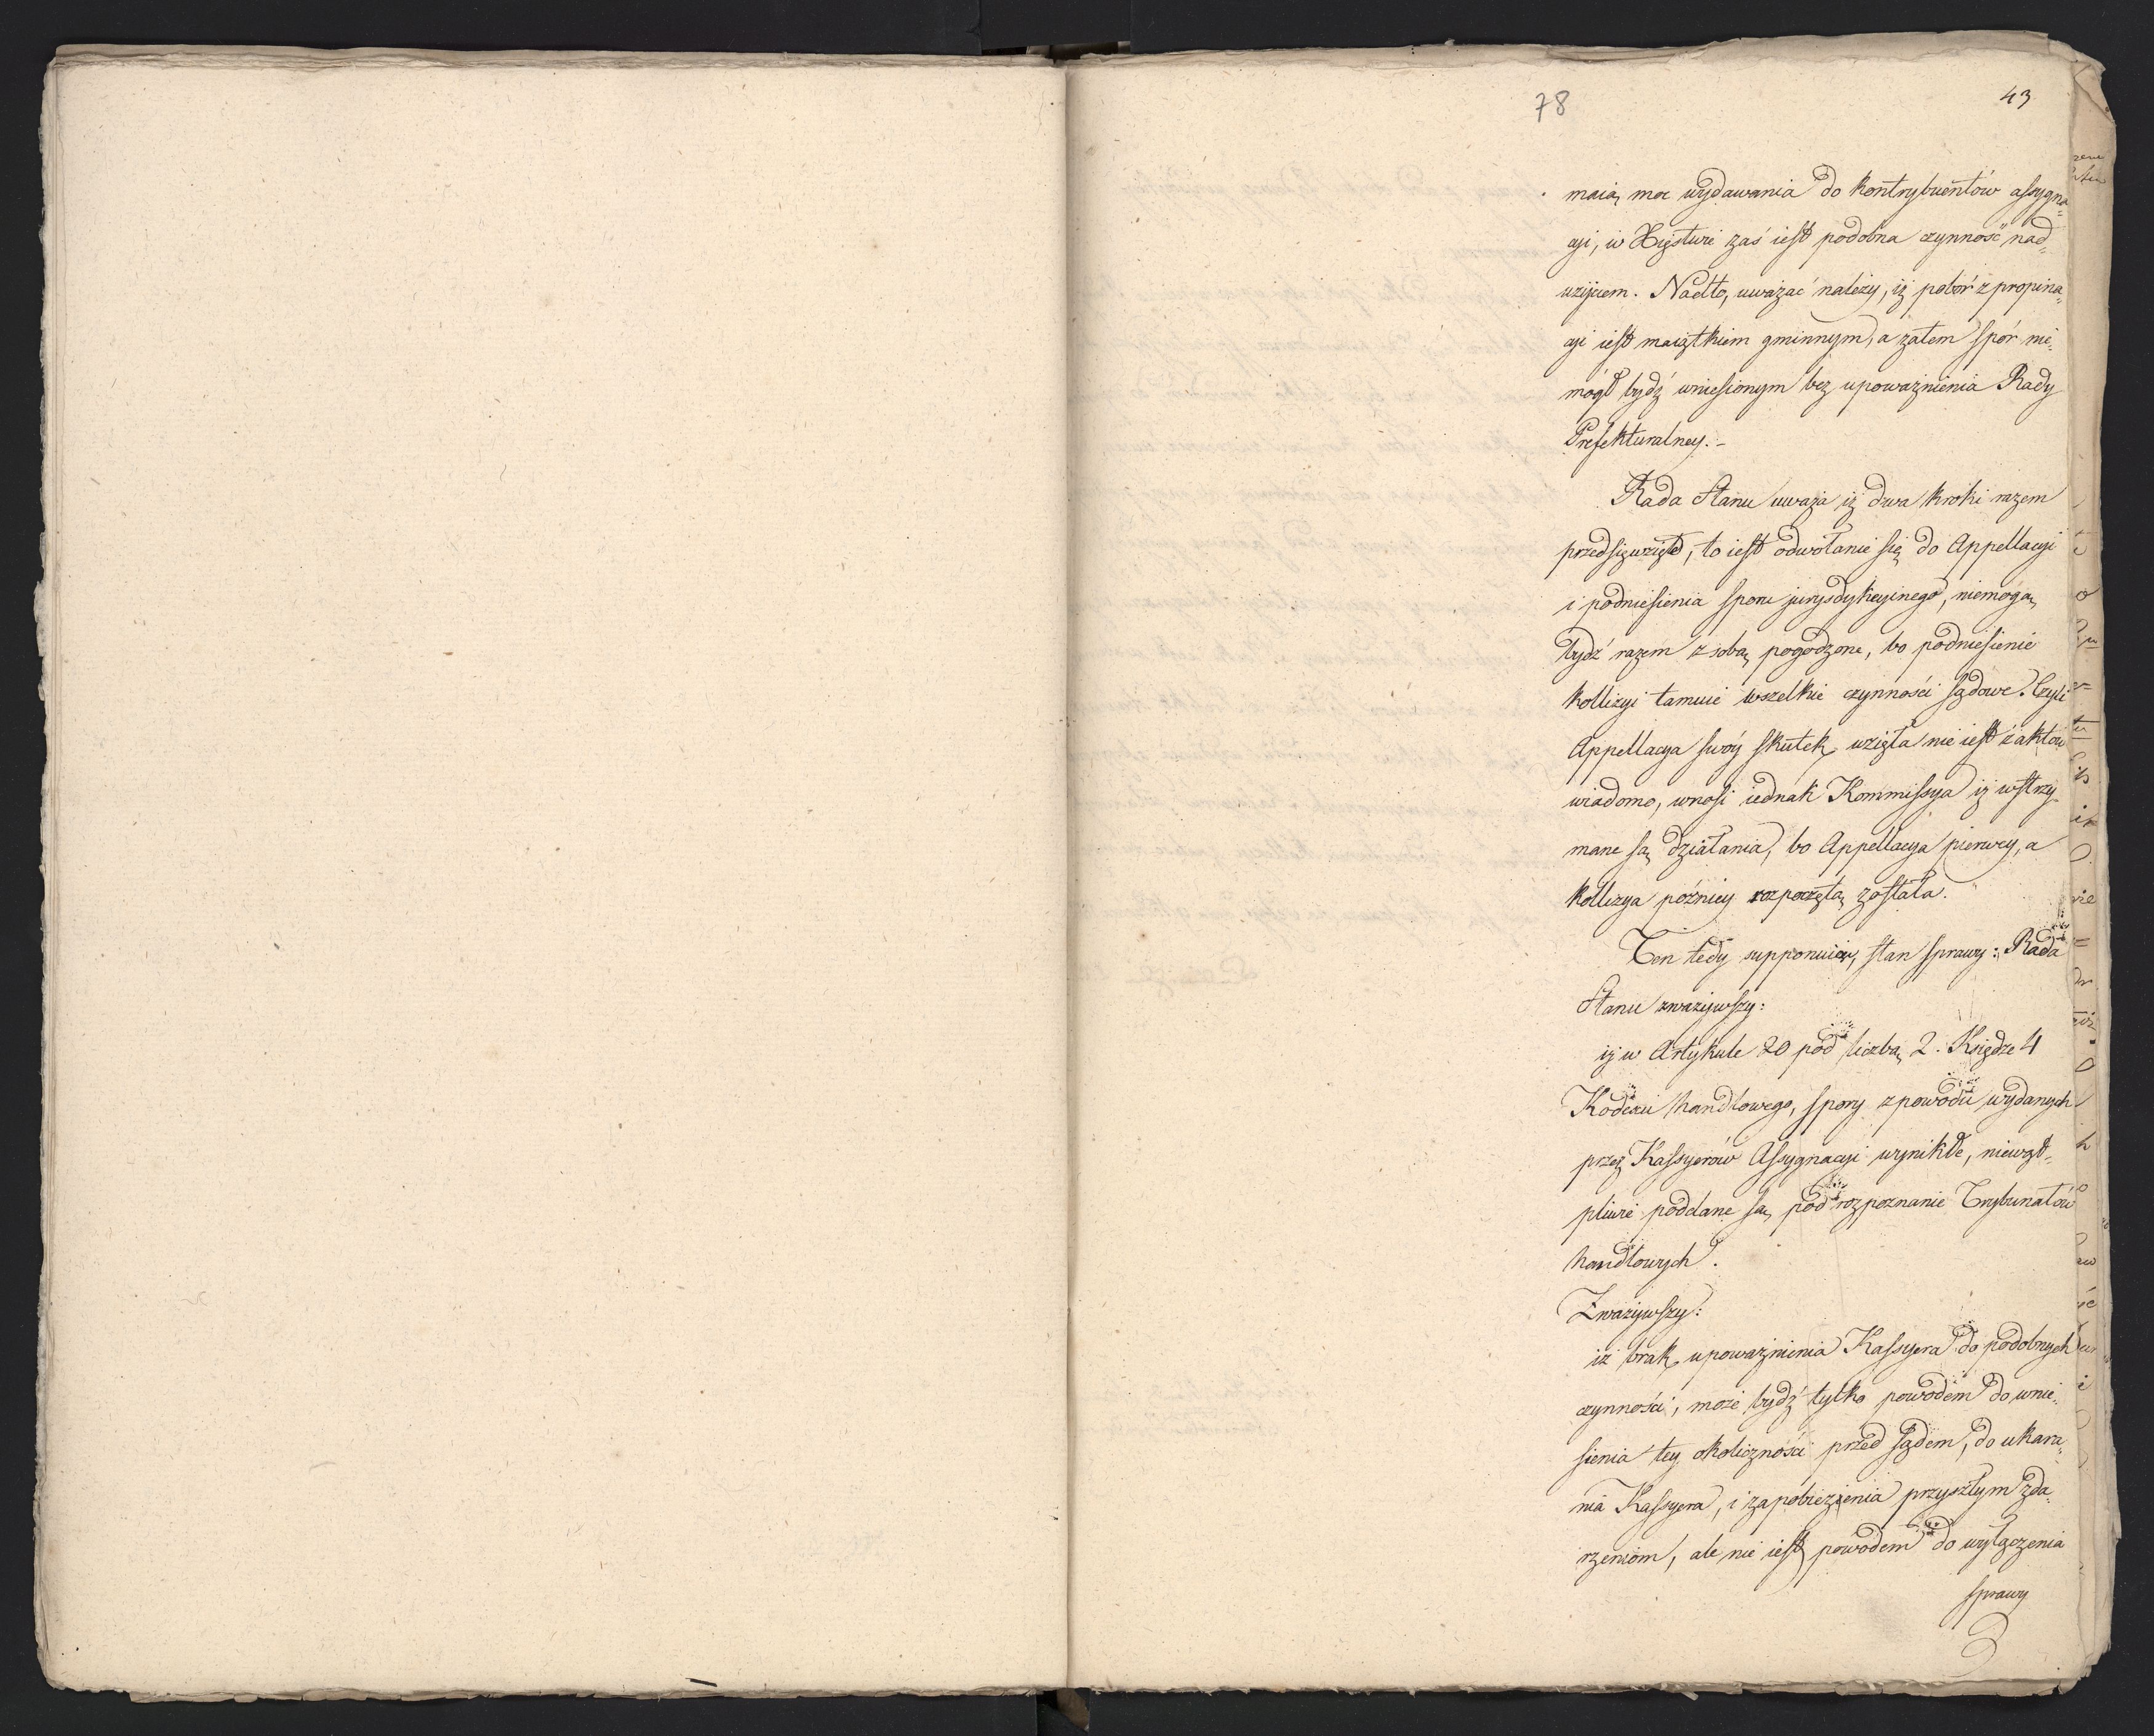 78
43
maią moc wydawania do kontrybuentów assygna=
cyi, w Xięstwie zaś iest podobna czynność nad=
użyciem. Nadto, uważać należy, iż pobór z propina=
cyi iest maiątkiem gminnym, a zatem spór nie=
mógł bydź wniesionym bez upoważnienia Rady
Prefekturalney.-
Rada Stanu uważa iż dwa kroki razem
przedsięwzięte, to iest odwołanie się do Appellacyi
i podniesienia sporu jurysdykcyinego, niemogą
bydź razem z sobą pogodzone, bo podniesienie
kollizyi tamuie wszelkie czynności sądowe. Czyli
Appellacya swóy skutek wzięła nie iest z aktów
wiadomo, wnosi iednak Kommissya iż wstrzy-
mane są działania, bo Appellacya pierwey, a
kollizya późniey rozpoczętą została.
Ten tedy supponuiąc stan sprawy: Rada
Stanu zważywszy:
iż w Artykule 20 pod liczbą 2. Księdze 4
Kodexu handlowego, spory z powodu wydanych
przez Kassyerów Assygnacyi wynikłe, niewąt=
pliwie poddane są pod rozpoznanie Trybunałów
handlowych.
Zważywszy:
iż brak upoważnienia Kassyera do podobnych
czynności, może bydź tylko powodem do wnie=
sienia tey okoliczności przed sądem, do ukara=
nia Kassyera, i zapobieżenia przyszłym zda=
rzeniom, ale nie iest powodem do wyłączenia
sprawy